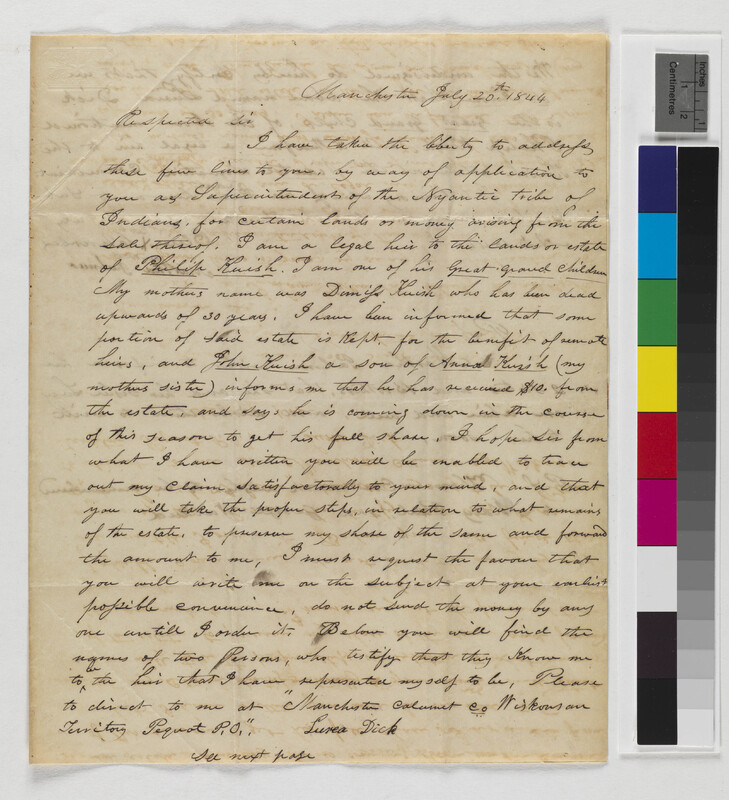 Manchester July 20th. 1844
Respected Sir
I have taken the liberty to address
these few lines to you. by way of application to
you as Superintendent of the Nyantic tribe of
Indians. for certain lands or money arising from the
sale thereof. I am a legal heir to the lands or estate
of Philip Kuish. I am one of his Great-grand Children
My mothers name was Dimiss Kuish who has been dead
upwards of 30 years. I have been informed that some
portion of said estate is Kept for the benefit of remote
heirs, and John Kuish a son of Anna Kuish (my
mothers sister) informs me that he has received $10. from
the estate, and says he is coming down in the course
of this season to get his full share. I hope Sir from
what I have written you will be enabled to trace
out my Claim satisfactorally to your mind, and that
you will take the proper steps, in relation to what remains
of the estate, to preserve my share of the same and forward
the amount to me, I must request the favour that
you will write me on the subject at your earliest
possible convenience, do not send the money by any
one untill I order it. Below you will find the
names of two Persons, who testify that they Know me
to be the heir that I have represented myself to be, Please
to direct to me at "Manchester Calumet Co Wiskonsan
Territory Pequot P.O.". Lurea Dick
See next page
Centimetres
Inches
1
2